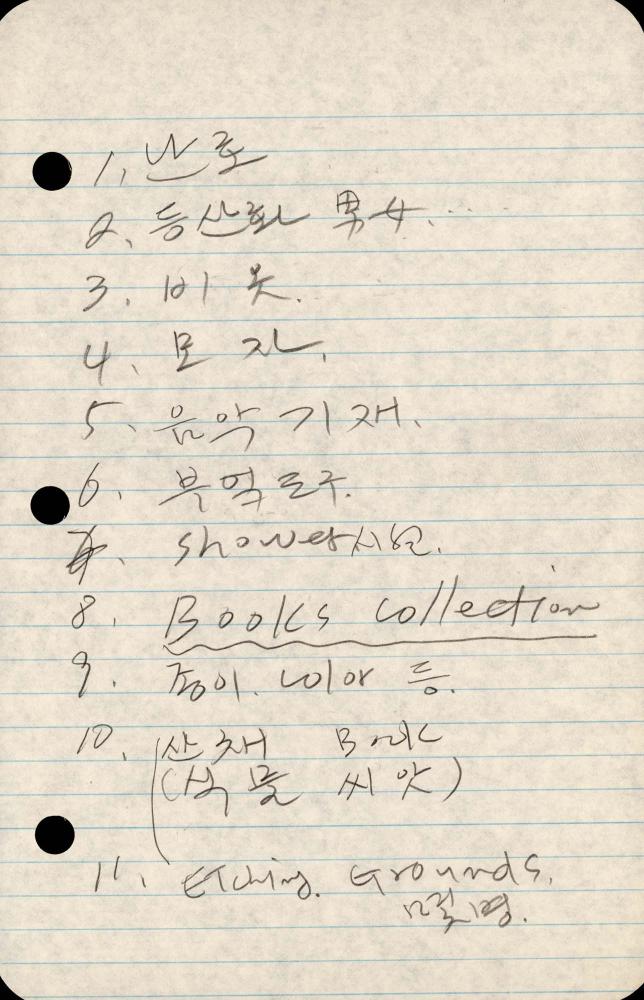 1. 난로
2. 등산화 男女...
3. 비옷.
4. 모자.
5. 음악 기재.
6. 부엌 도구.
7. shower시설.
8. Books collection
9. 종이. 나이아 등.
10. 산채 Book
(식물 씨앗)
11. Etching. Grounds.